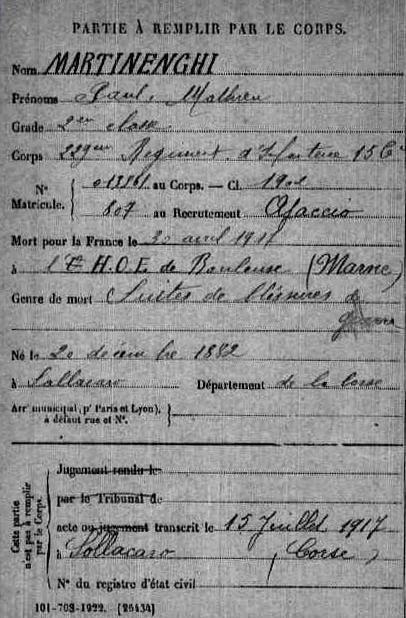 PARTIE À REMPLIR PAR LE CORPS.
Nom MARTINENGHI
Prénoms Paul, Mathieu
Grade 2me classe
Corps 229me Régiment d'
N° Matricule. au Corps. — Cl. 1902
807 au Recrutement Ajaccio
Mort pour la France le avril
à H.O.E de Bouleuse (Marne)
Genre de mort Suites de blessures de
guerre
Né le 20 décembre 1882
à Sollacaro Département de la Corse
Arrt municipal (pr Paris et Lyon), à défaut rue et N°.
Cette partie n'est pas à remplir par le Corps.
Jugement rendu le
par le Tribunal de
acte ou jugement transcrit le 15 Juillet 1917
à Sollacaro (Corse)
N° du registre d'état civil
101-708-1922. [26434]